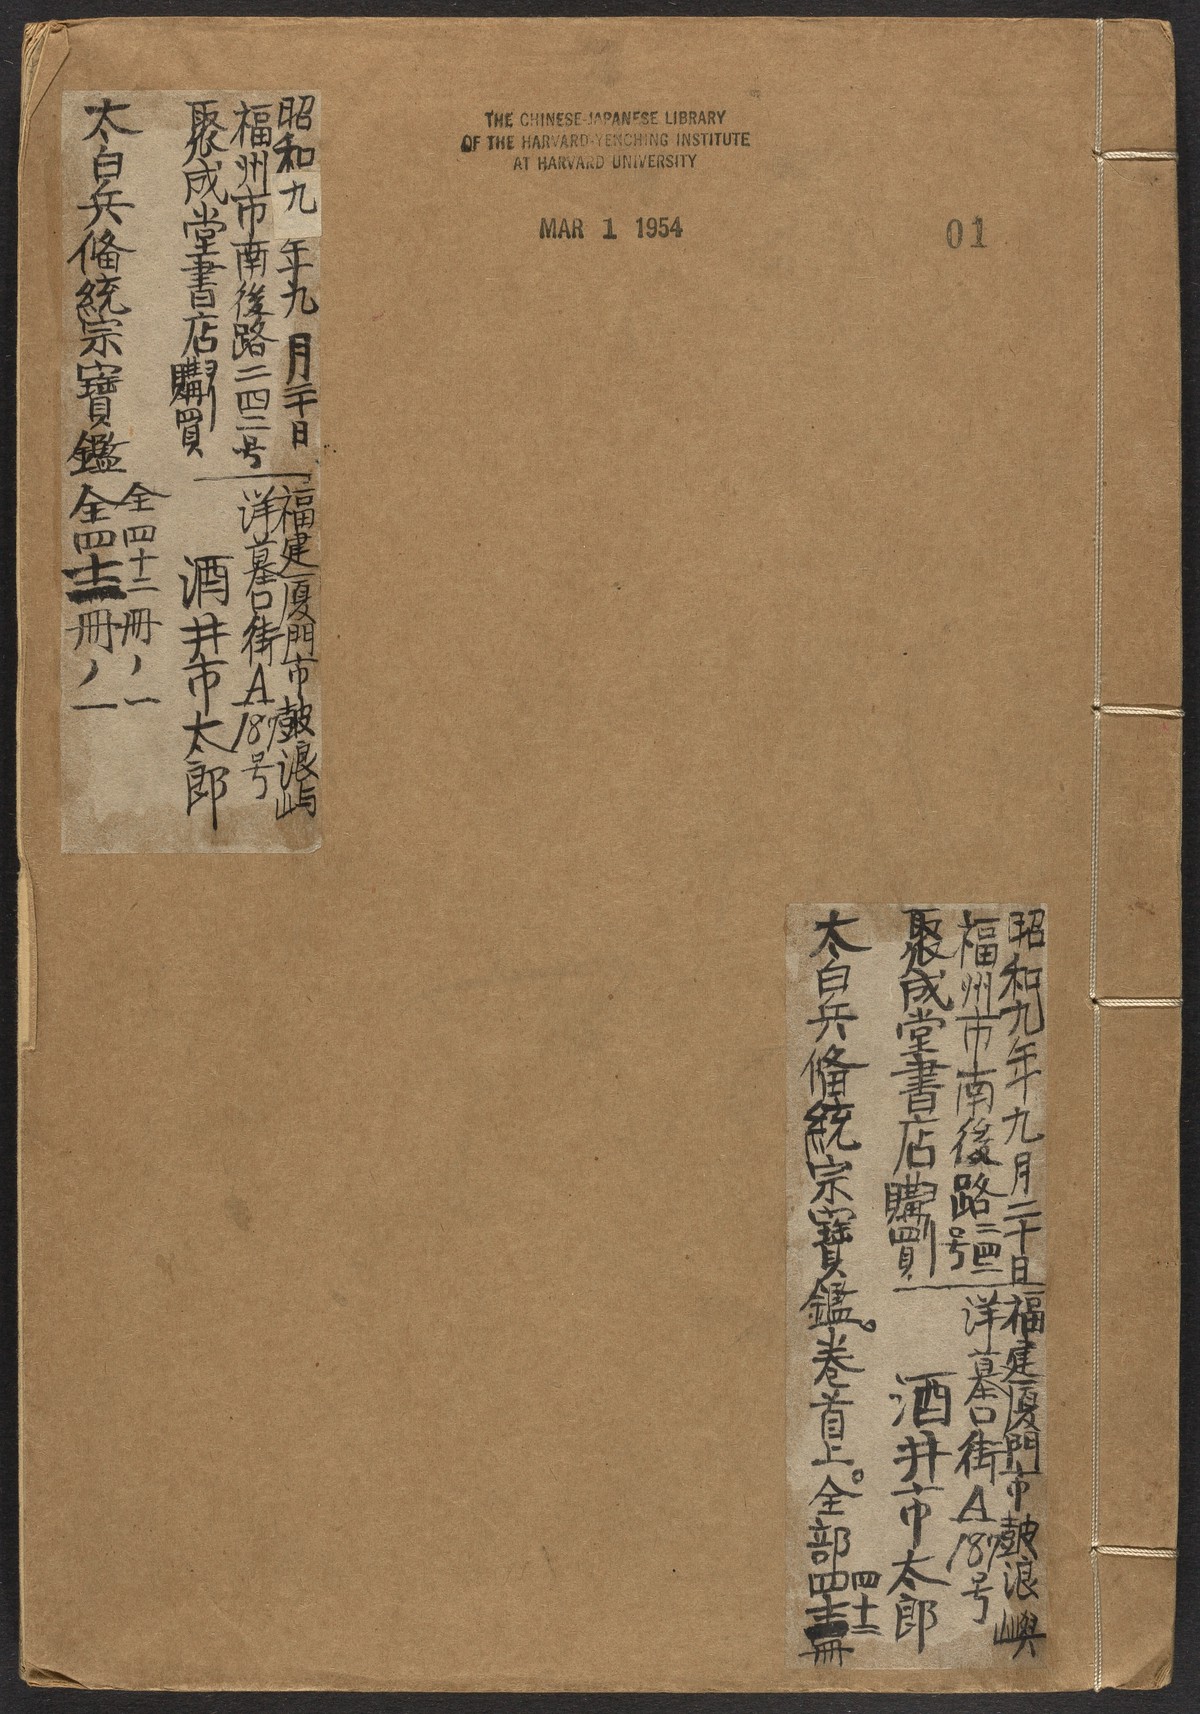 THE CHINESE-JAPANESE LIBRARY
OF THE HARVARD-YENCHING INSTITUTE
AT HARVARD UNIVERSITY
MAR 1 1954
01
昭和九年九月二十日
福州市南後路二四二号
聚成堂書店購買
福建厦門市鼓浪屿
洋墓口街A187号
酒井市太郎
太白兵俻統宗寳鑑
全四十二冊ノ一
全四冊ノ一
昭和九年九月二十日
福州市南後路二四二号
聚成堂書店購買
福建厦門市鼓浪嶼
洋墓口街A187号
酒井市太郎
太白兵俻統宗寳鑑。卷首上。全部四冊
四十二